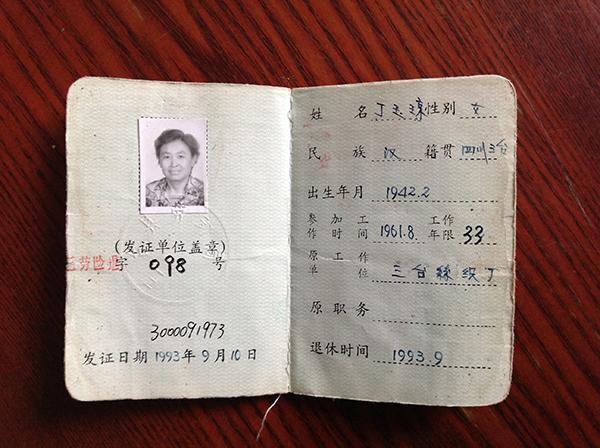 (发证单位盖章)
三劳险退字 098 号
3000091973
发证日期 1993 年 9 月 10 日
姓 名 丁 性别 女
民 族 汉 籍贯 四川三台
出生年月 1942.2
参加工作时间 1961.8 工作年限 33
原工作单位 三台丝织丁
原职务
退休时间 1993.9